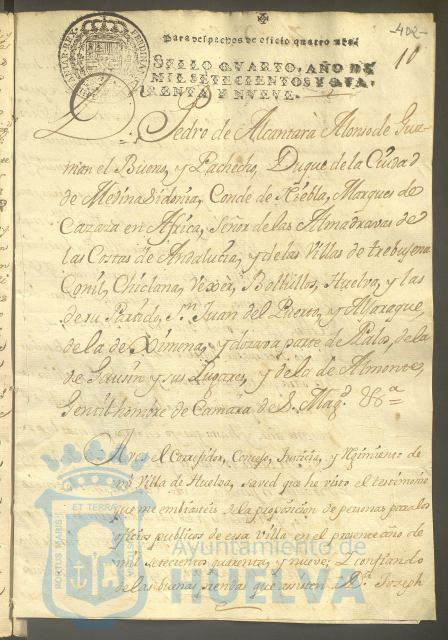 -402-
10
Para despachos de oficio quatro mrs.
SELLO QVARTO, AÑO DE
MIL SETECIENTOS Y QVA,
RENTA Y NVEVE.
D. Pedro de Alcantara Alonso de Guz
man el Bueno, y Pacheco, Duque de la Ciudad
de Medina Sidonia, Conde de Niebla, Marques de
Cazaza en Africa, Señor de las Almadravas de
las Costas de Andalucia, y de las Villas de trebujena
Conil, Chiclana, Vexer, Bolhullos, Huelva, y las
de su Partido, Sn. Juan del Puerto, y Alxaraque
de la de Ximena, y dozava parte de Palos, de la
de Gausin y sus Lugares, y de la de Almonte,
Gentilhombre de Camara de S. Magd. &&a
A vos el Corregidor, Concejo, Justicia, y Regimiento de
mi Villa de Huelva, saved que he visto el testimonio
que me embiasteis de la proposicion de personas para los
oficios publicos de esa villa en el presente año de
mil setecientos quarenta y nueve; I confiando
de las buenas prendas que asisten a Dn. Joseph
PORTUS MARIS ET TERRAE
Ayuntamiento de
HUELVA